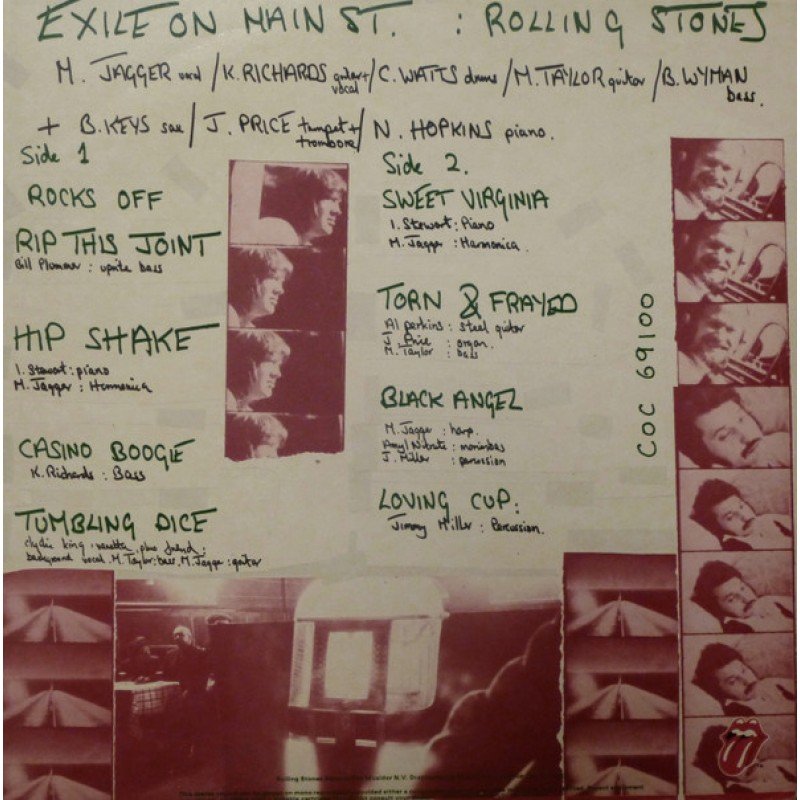 EXILE ON MAIN ST. : ROLLING STONES
M. JAGGER vocal / K. RICHARDS guitar + vocal / C. WATTS drums / M. TAYLOR guitar / B. WYMAN bass.
+ B. KEYS sax / J. PRICE trumpet + trombone / N. HOPKINS piano.
Side 1
ROCKS OFF
RIP THIS JOINT
Bill Plummer : uprite bass
HIP SHAKE
I. Stewart : piano
M. Jagger : Harmonica
CASINO BOOGIE
K. Richards : Bass
TUMBLING DICE
Clydie King, vanetta, plus friend :
background vocal. M. Taylor : bass. M. Jagger : guitar
Side 2.
SWEET VIRGINIA
I. Stewart : Piano
M. Jagger : Harmonica.
TORN & FRAYED
Al perkins : Steel guitar
J. Price : organ.
M. Taylor : bass
BLACK ANGEL
M. Jagger : harp.
Amyl Nitrate : marimbas
J. Miller : percussion
LOVING CUP :
Jimmy Miller : Percussion.
COC 69100
Rolling Stones N.V.